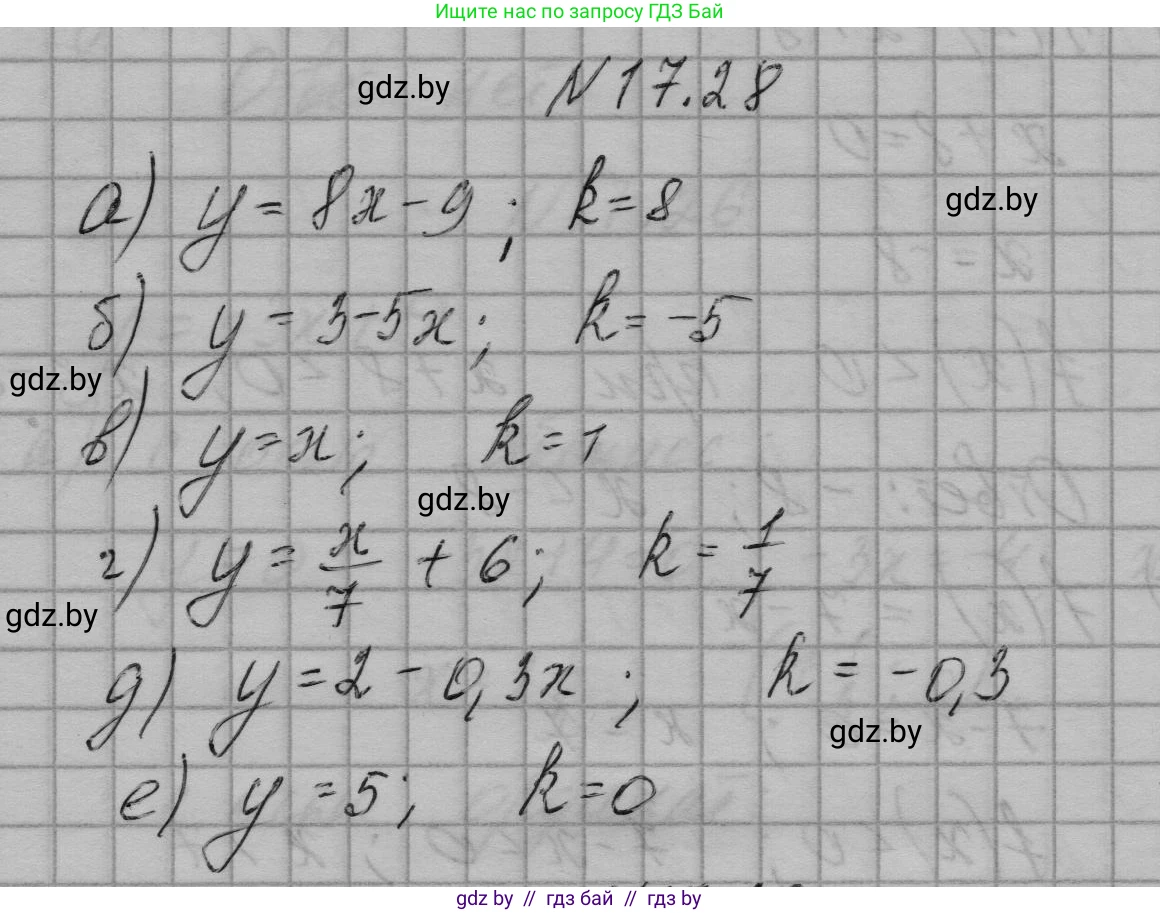 Ищите нас по запросу ГДЗ Бай
gdz.by
N 17.28
а) y = 8x - 9 ; k = 8
gdz.by
б) y = 3 - 5x ; k = -5
gdz.by
в) y = x ; k = 1
gdz.by
г) y = x/7 + 6 ; k = 1/7
gdz.by
д) y = 2 - 0,3x ; k = -0,3
gdz.by
е) y = 5 ; k = 0
gdz.by // гдз бай // гдз by